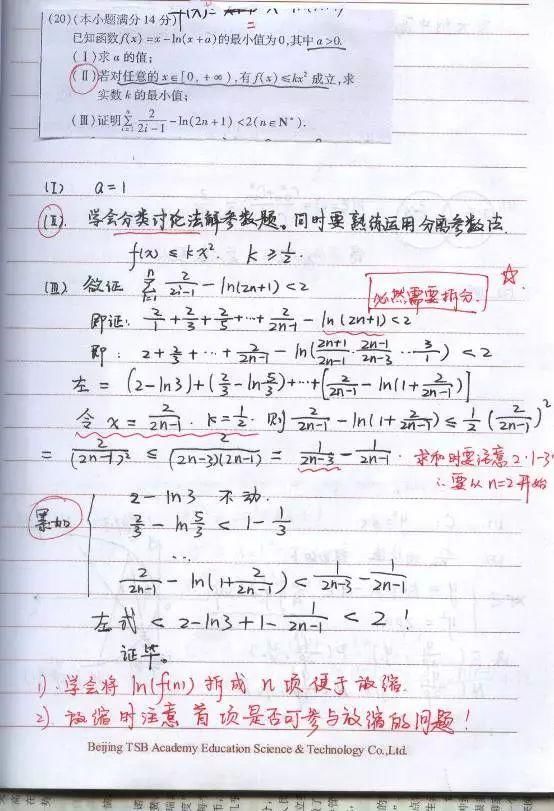 f(x)=
(20)(本小题满分14分)
已知函数f(x)=x-ln(x+a)的最小值为0,其中a>0.
(Ⅰ)求a的值;
(Ⅱ)若对任意的x∈[0,+∞),有f(x)≤kx²成立,求
实数k的最小值;
(Ⅲ)证明∑_{i=1}^{n} 2/(2i-1) - ln(2n+1)<2(n∈N*).
(Ⅰ) a=1
(Ⅱ). 学会分类讨论法解参数题。同时要熟练运用分离参数法.
f(x) ≤ kx². k ≥ 1/2.
(Ⅲ) 欲证 ∑_{i=1}^{n} 2/(2i-1) - ln(2n+1) < 2
必然需要拆分. ☆
即证: 2/1 + 2/3 + 2/5 + … + 2/(2n-1) - ln(2n+1) < 2
即: 2 + 2/3 + … + 2/(2n-1) - ln((2n+1)/(2n-1) · (2n-1)/(2n-3) … 3/1) < 2
左 = (2-ln3) + (2/3 - ln5/3) + … + [2/(2n-1) - ln(1+2/(2n-1))]
令 x = 2/(2n-1). k=1/2. 则 2/(2n-1) - ln(1+2/(2n-1)) ≤ 1/2 (2/(2n-1))²
= 2/(2n-1)² ≤ 2/((2n-3)(2n-1)) = 1/(2n-3) - 1/(2n-1). 求和时要注意2·1-3
∴要从n=2开始
累加
2-ln3 不动.
2/3 - ln5/3 < 1 - 1/3
…
2/(2n-1) - ln(1+2/(2n-1)) < 1/(2n-3) - 1/(2n-1)
左式 < 2-ln3+1-1/(2n-1) < 2!
证毕。
1). 学会将 ln(f(n)) 拆成 n 项便于放缩.
2) 放缩时注意首项是否可参与放缩的问题!
Beijing TSB Academy Education Science & Technology Co.,Ltd.